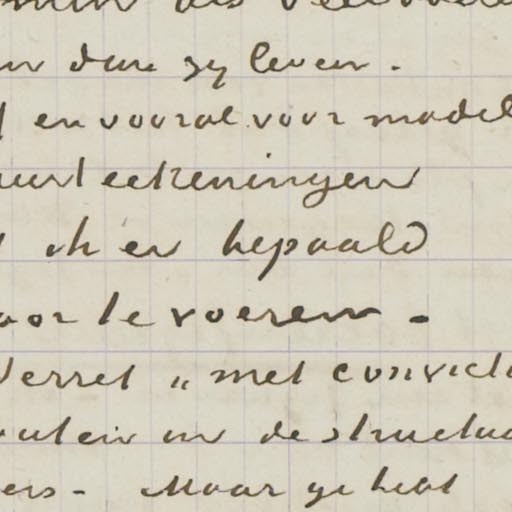 dan zy leven.
en vooral voor model
teekeningen
ik er bepaald
voor te voeren -
Verret „met convict
in de structuu
ers - Maar ge hebt